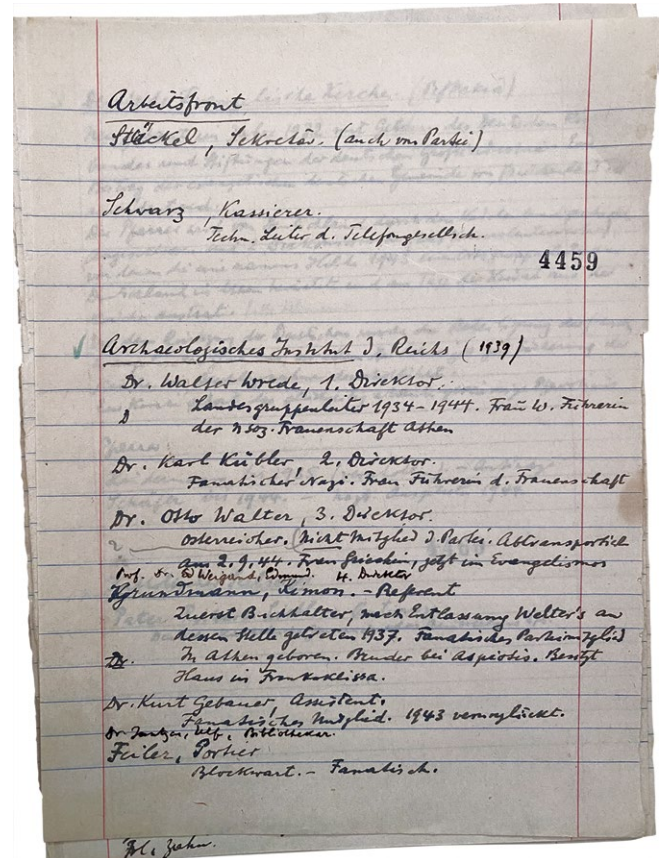 Arbeitsfront
Stäckel, Sekretär. (auch von Partei)
Schwarz, Kassierer.
Techn. Leiter d. Telefongesellsch.
4459
Archaeologisches Institut d. Reichs (1939)
Dr. Walter Wrede, 1. Direktor.
Landesgruppenleiter 1934-1944. Frau W. Führerin
der nsoz. Frauenschaft Athen
Dr. Karl Kübler, 2. Direktor.
Fanatischer Nazi. Frau Führerin d. Frauenschaft
Dr. Otto Walter, 3. Direktor.
Österreicher. (Nicht Mitglied d. Partei. Abtransportiert
am 2.9.44. Frau Griechin, jetzt im Evangelismos
Prof. Dr. Ed Weigand, 4. Direktor
Grundmann, Kimon. - Referent
Zuerst Buchhalter, nach Entlassung Welter's an
dessen Stelle getreten 1937. Fanatisches Parteimitglied
In Athen geboren. Bruder bei Aspiotis. Besitzt
Haus in Frankoklissa.
Dr. Kurt Gebauer, Assistent.
Fanatisches Mitglied. 1943 verunglückt.
Dr. Jantzen, Ulf, Bibliothekar.
Feiler, Portier
Blockwart. - Fanatisch.
Frl. Zahn.